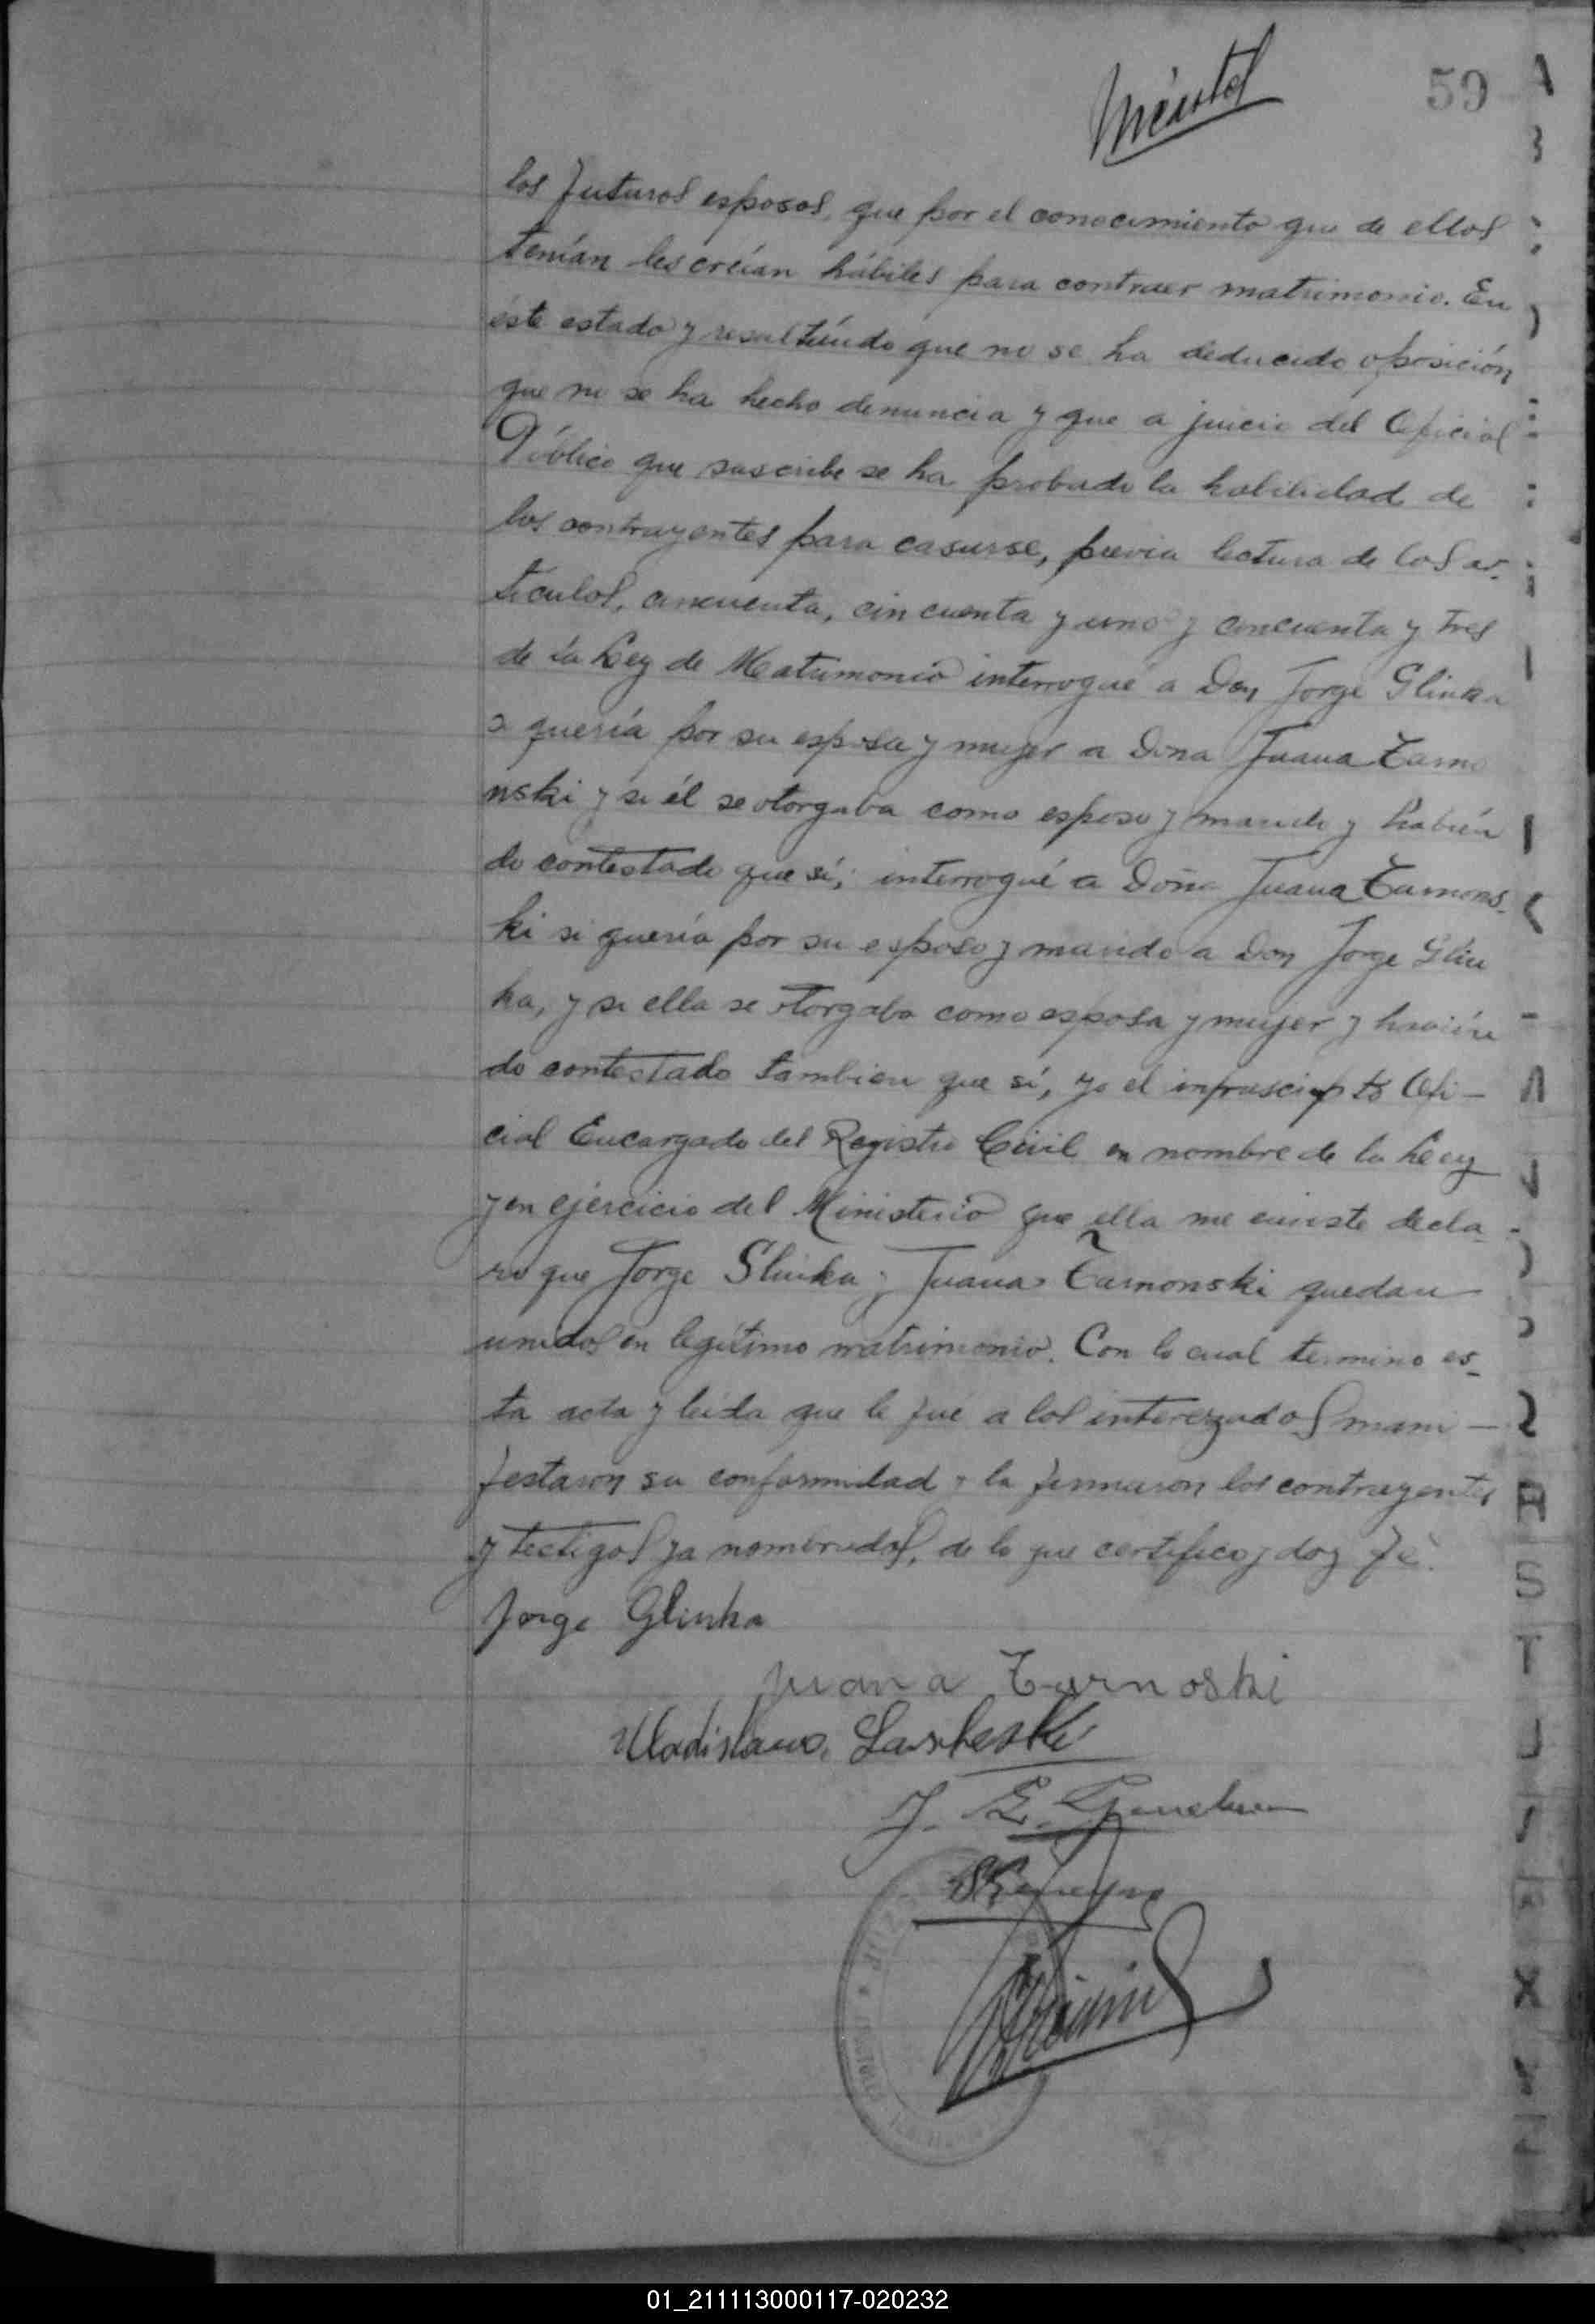 59
los futuros esposos, que por el conocimiento que de ellos
tenían les creían hábiles para contraer matrimonio. En
éste estado y resultando que no se ha deducido oposición
que no se ha hecho denuncia y que a juicio del Oficial
Público que suscribe se ha probado la habilidad de
los contrayentes para casarse, previa lectura de los ar-
tículos, cincuenta, cincuenta y uno y cincuenta y tres
de la Ley de Matrimonio interrogué a Don Jorge Glinka
si quería por su esposa y mujer a Doña Juana Tarno
nski y si él se otorgaba como esposo y marido y habién
do contestado que sí, interrogué a Doña Juana Tarnons-
ki si quería por su esposo y marido a Don Jorge Glin
ka, y si ella se otorgaba como esposa y mujer y habién
do contestado tambien que sí, yo el infrascripto Ofi-
cial Encargado del Registro Civil en nombre de la Ley
y en ejercicio del Ministerio que ella me inviste decla-
ro que Jorge Glinka y Juana Tarnonski quedan
unidos en legítimo matrimonio. Con lo cual termino es-
ta acta y leída que le fué a los interezados mani-
festaron su conformidad y la firmaron los contrayentes
y testigos ya nombrados, de lo que certifico y doy fé.
Jorge Glinka
Juana Tarnoski
Uladislavo
J. E.
01_211113000117-020232